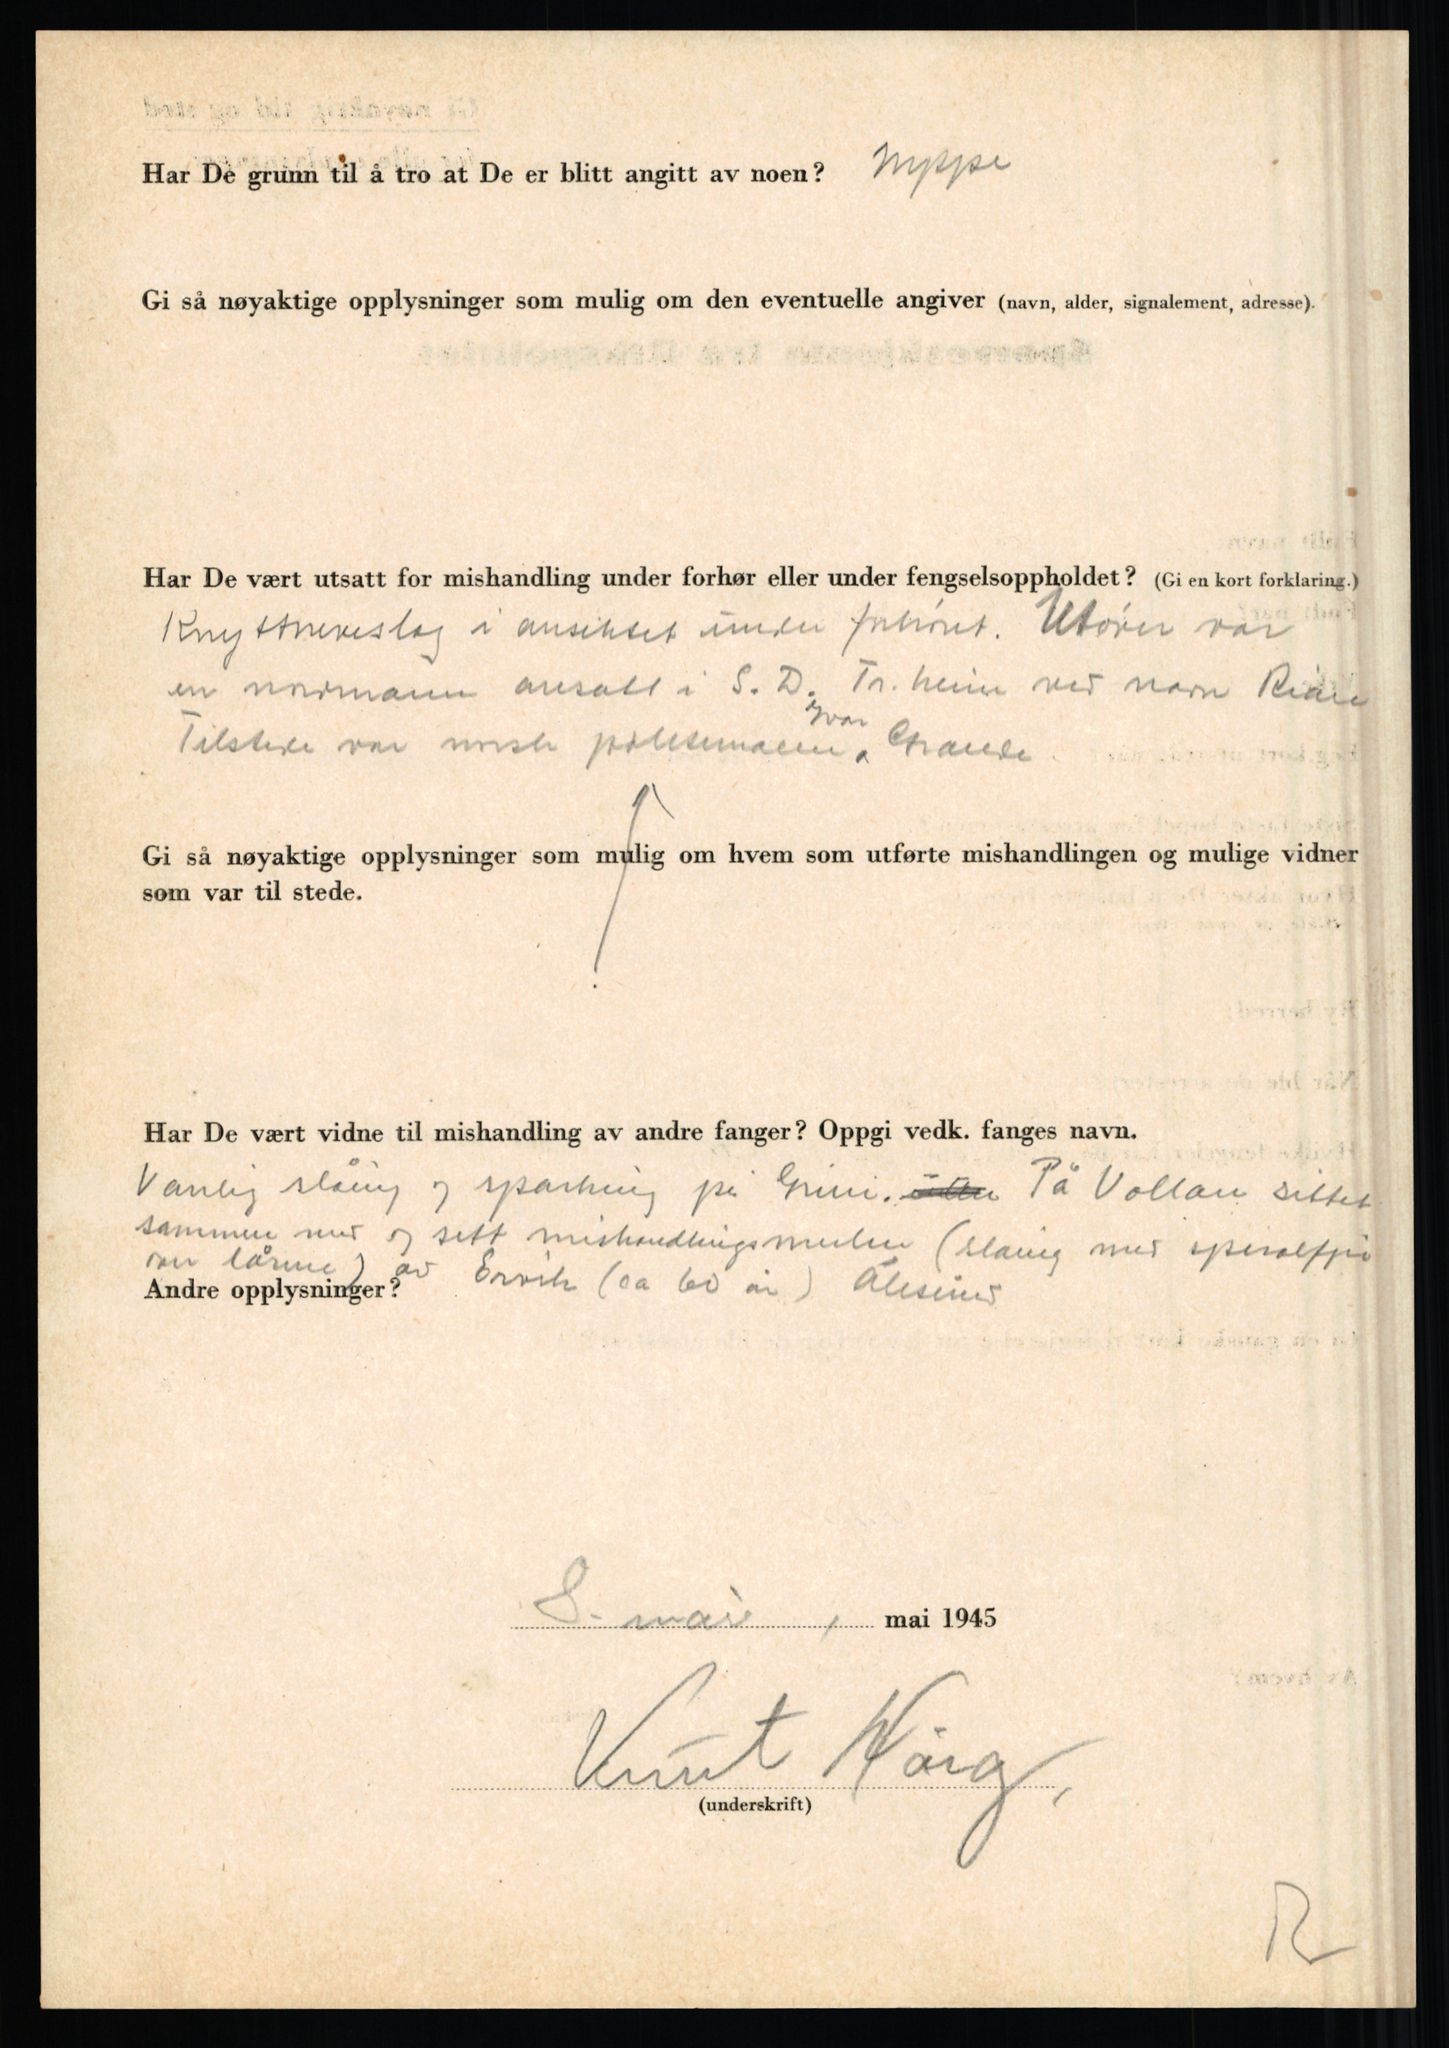 Har De grunn til å tro at De er blitt angitt av noen? Neppe
Gi så nøyaktige opplysninger som mulig om den eventuelle angiver (navn, alder, signalement, adresse).
Har De vært utsatt for mishandling under forhør eller under fengselsoppholdet? (Gi en kort forklaring.)
Knyttneveslag i ansiktet under forhöret. Utöver var
en nordmann ansatt i S. D. Tr. heim ved navn
Tilstede var norsk politimann Ivar Grande.
Gi så nøyaktige opplysninger som mulig om hvem som utførte mishandlingen og mulige vidner
som var til stede.
Har De vært vidne til mishandling av andre fanger? Oppgi vedk. fanges navn.
Vanlig slåing og sparking på Grini. På Vollan sittet
sammen med og sett mishandlingsmerkene (slåing med spiralfjær
over lårene) av Ervik (ca 60 år) Ålesund
Andre opplysninger?
8. mai, mai 1945
Knut Hårg.
(underskrift)
R